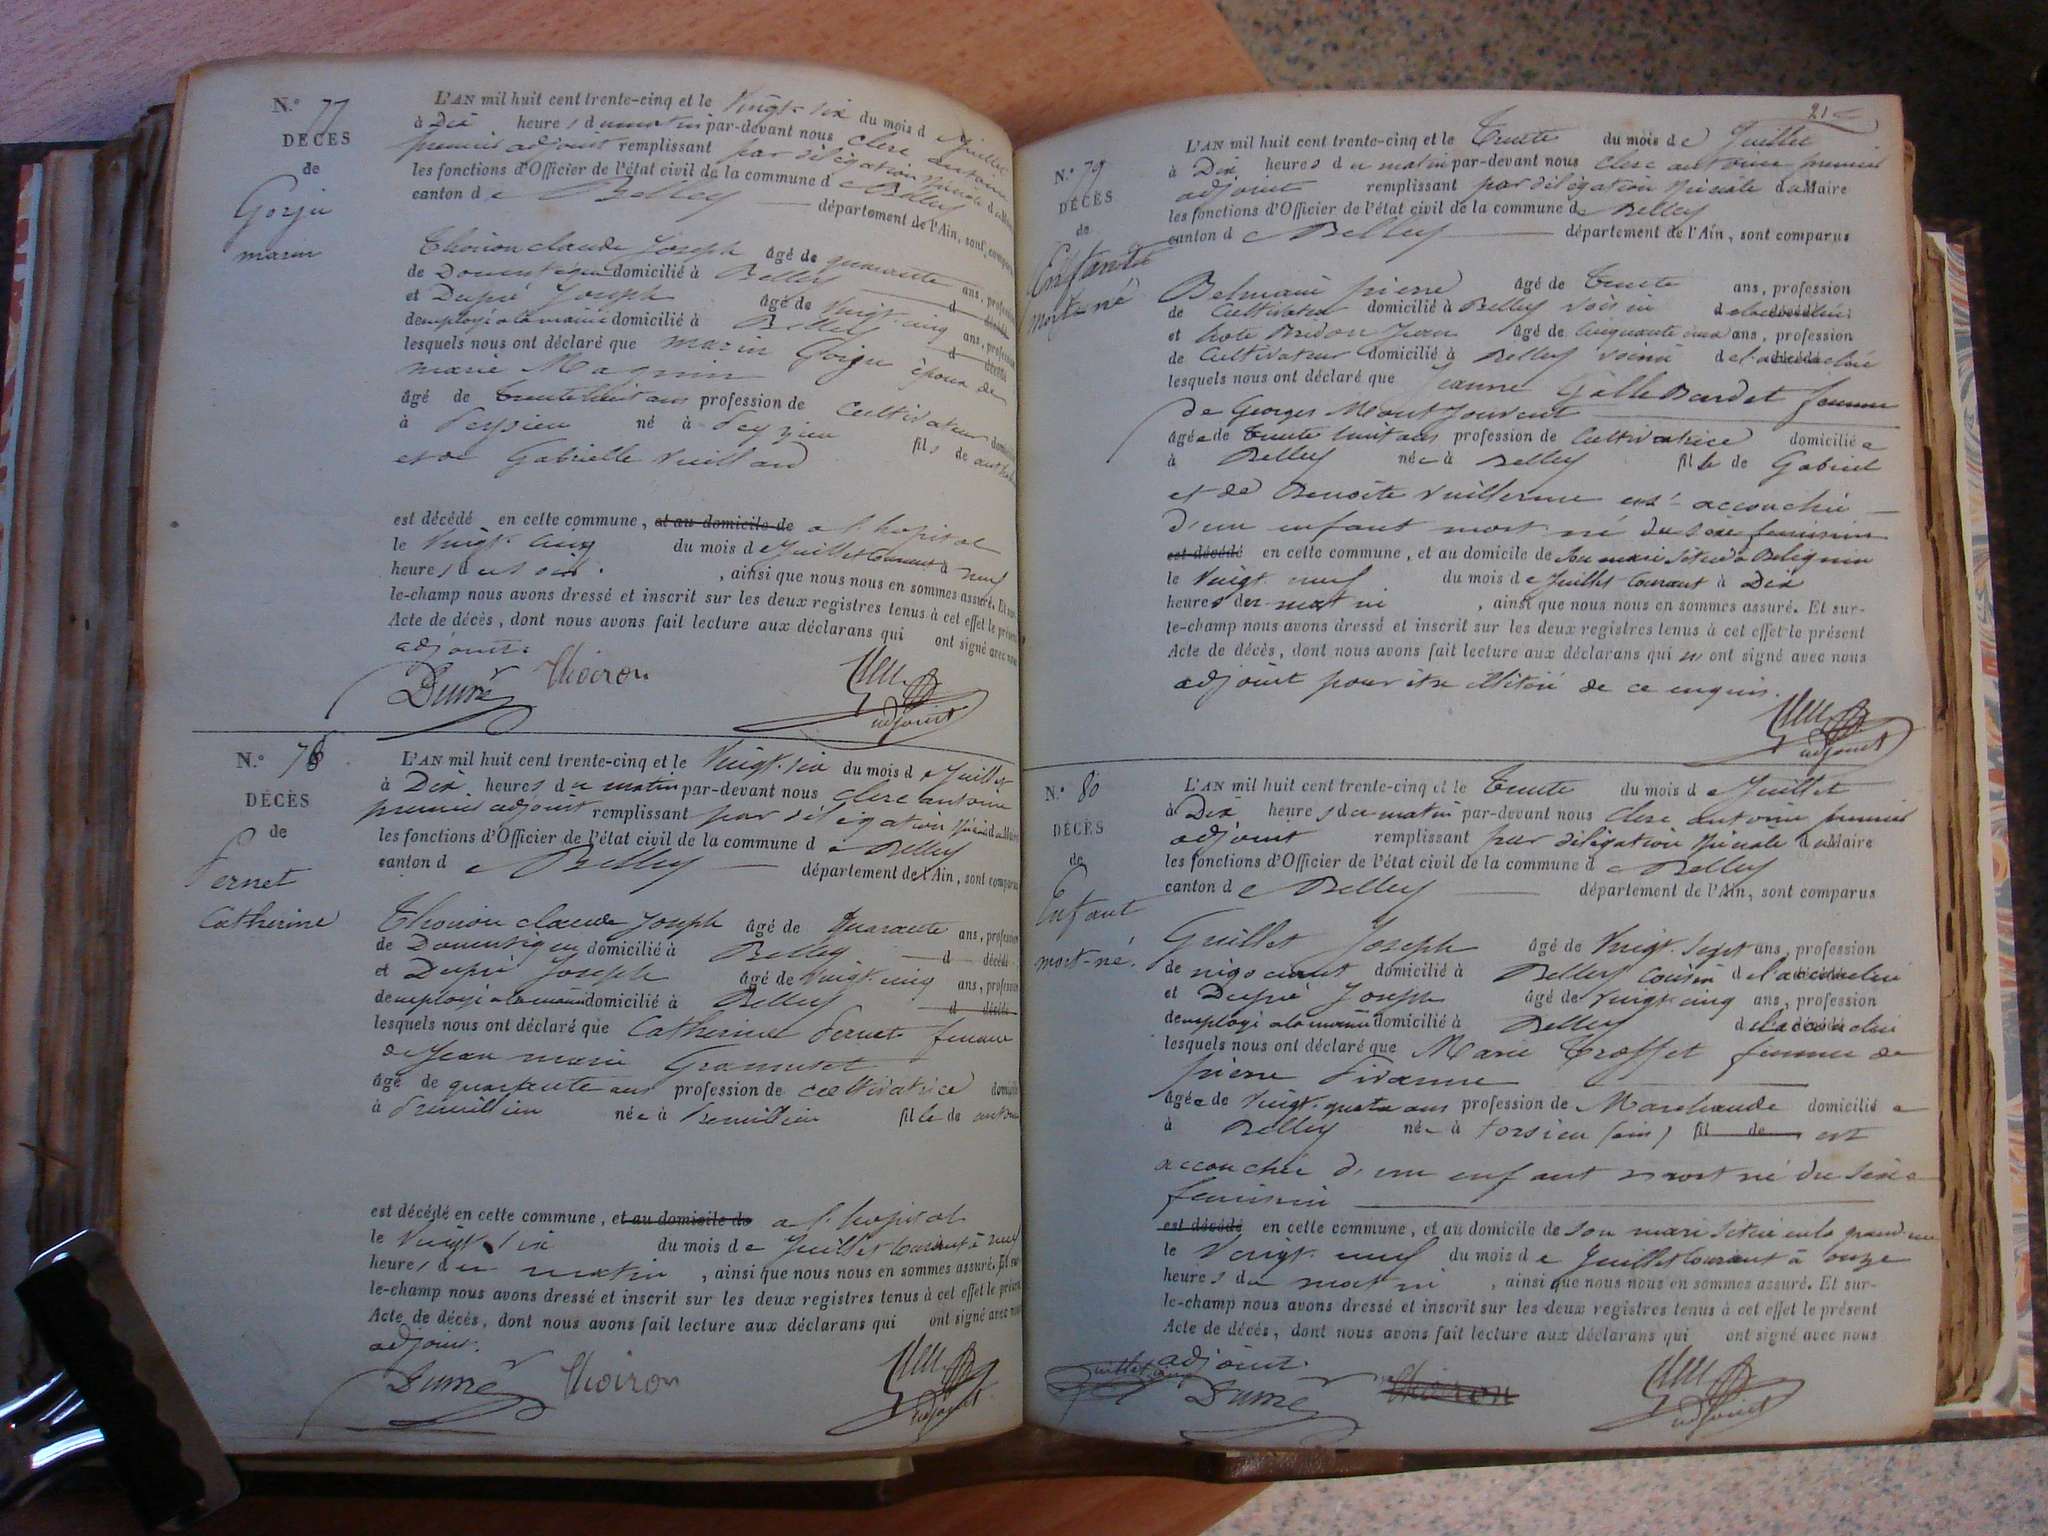 N.° 77
DÉCÈS
de
Gorju
marin
L'AN mil huit cent trente-cinq et le Vingt-six du mois de Juillet
à Dix heures du matin par-devant nous Clerc antoine
premier adjoint remplissant par délégation spéciale du Maire
les fonctions d'Officier de l'état civil de la commune de Belley
canton de Belley département de l'Ain, sont comparus
Thoiron claude Joseph âgé de quarante ans, profession
de Domestique domicilié à Belley d décédé
et Dupré Joseph âgé de Vingt-cinq ans, profession
d'employé a la mairie domicilié à Belley d décédé
lesquels nous ont déclaré que marin Gorju époux de
marie Magnin
âgé de trente huit ans profession de Cultivateur domicilié
à Peyzieu né à Peyzieu fils de
et de Gabrielle Vuillard
est décédé en cette commune, et au domicile de a l'hopital
le Vingt cinq du mois de Juillet courant à neuf
heures du soir, ainsi que nous nous en sommes assuré. Et sur-
le-champ nous avons dressé et inscrit sur les deux registres tenus à cet effet le présent
Acte de décès, dont nous avons fait lecture aux déclarans qui ont signé avec nous
adjoint.
Dupré Thoiron Clerc
adjoint
N.° 78
DÉCÈS
de
Pernet
Catherine
L'AN mil huit cent trente-cinq et le Vingt-six du mois de Juillet
à Dix heures du matin par-devant nous clerc antoine
premier adjoint remplissant par délégation spéciale du Maire
les fonctions d'Officier de l'état civil de la commune de Belley
canton de Belley département de l'Ain, sont comparus
Thoiron claude Joseph âgé de Quarante ans, profession
de Domestique domicilié à Belley d décédé
et Dupré Joseph âgé de Vingt-cinq ans, profession
d'employé a la mairie domicilié à Belley d décédé
lesquels nous ont déclaré que Catherine Pernet femme
de Jean marie
âgé de quarante ans profession de cultivatrice domicilié
à Premillieu née à Premillieu fille de
est décédé en cette commune, et au domicile de a l'hopital
le Vingt six du mois de Juillet courant à neuf
heures du matin, ainsi que nous nous en sommes assuré. Et sur-
le-champ nous avons dressé et inscrit sur les deux registres tenus à cet effet le présent
Acte de décès, dont nous avons fait lecture aux déclarans qui ont signé avec nous
adjoint.
Dupré Thoiron Clerc
adjoint
N.° 79
DÉCÈS
de
Enfant
mort-né
L'AN mil huit cent trente-cinq et le Trente du mois de Juillet
à Dix heures du matin par-devant nous clerc antoine premier
adjoint remplissant par délégation spéciale du Maire
les fonctions d'Officier de l'état civil de la commune de Belley
canton de Belley département de l'Ain, sont comparus
pierre âgé de Trente ans, profession
de Cultivateur domicilié à Belley voisin de l'accouchée
et Jean âgé de Cinquante ans, profession
de Cultivateur domicilié à Belley voisin de l'accouchée
lesquels nous ont déclaré que Jeanne femme
de Georges
âgée de trente huit ans profession de Cultivatrice domiciliée
à Belley née à Belley fille de Gabriel
et de Benoite Vuillerme est accouchée
d'un enfant mort né du sexe feminin
est décédé en cette commune, et au domicile de son mari situé à
le Vingt-neuf du mois de Juillet courant à Dix
heures du matin, ainsi que nous nous en sommes assuré. Et sur-
le-champ nous avons dressé et inscrit sur les deux registres tenus à cet effet le présent
Acte de décès, dont nous avons fait lecture aux déclarans qui n'ont signé avec nous
adjoint pour être illitéré de ce enquis.
Clerc
adjoint
N.° 80
DÉCÈS
de
Enfant
mort-né.
L'AN mil huit cent trente-cinq et le Trente du mois de Juillet
à Dix heures du matin par-devant nous clerc antoine premier
adjoint remplissant par délégation spéciale du Maire
les fonctions d'Officier de l'état civil de la commune de Belley
canton de Belley département de l'Ain, sont comparus
Guillet Joseph âgé de Vingt-sept ans, profession
de négociant domicilié à Belley cousin de l'accouchée
et Dupré Joseph âgé de Vingt-cinq ans, profession
d'employé a la mairie domicilié à Belley de l'accouchée
lesquels nous ont déclaré que Marie femme de
pierre
âgée de Vingt-quatre ans profession de Marchande domiciliée
à Belley née à Torsieu (ain) fil de est
accouchée d'un enfant mort né du sexe
feminin
est décédé en cette commune, et au domicile de son mari situé en la grand rue
le Vingt-neuf du mois de Juillet courant à onze
heures du matin, ainsi que nous nous en sommes assuré. Et sur-
le-champ nous avons dressé et inscrit sur les deux registres tenus à cet effet le présent
Acte de décès, dont nous avons fait lecture aux déclarans qui ont signé avec nous
adjoint.
Guillet Dupré Thoiron Clerc
adjoint